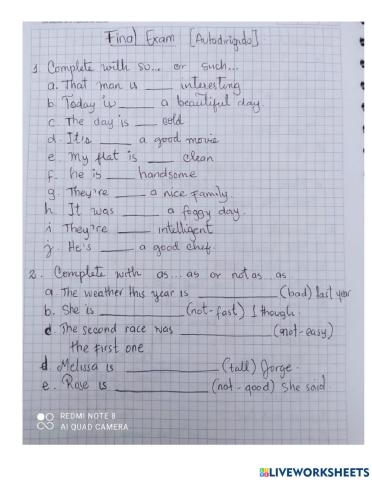 Final Exam [Autodirigido]
1. Complete with so... or such...
a. That man is ____ interesting
b. Today is ____ a beautiful day.
c. The day is ____ cold
d. It's ____ a good movie
e. My flat is ____ clean
f. he is ____ handsome
g. They're ____ a nice family.
h. It was ____ a foggy day.
i. They're ____ intelligent
j. He's ____ a good chef.
2. Complete with as... as or not as... as
a. The weather this year is ____ (bad) last year
b. She is ____ (not-fast) I though.
d The second race was ____ (not-easy)
the first one
d. Melissa is ____ (tall) Jorge.
e. Rose is ____ (not-good) she said
REDMI NOTE 8
AI QUAD CAMERA
LIVEWORKSHEETS